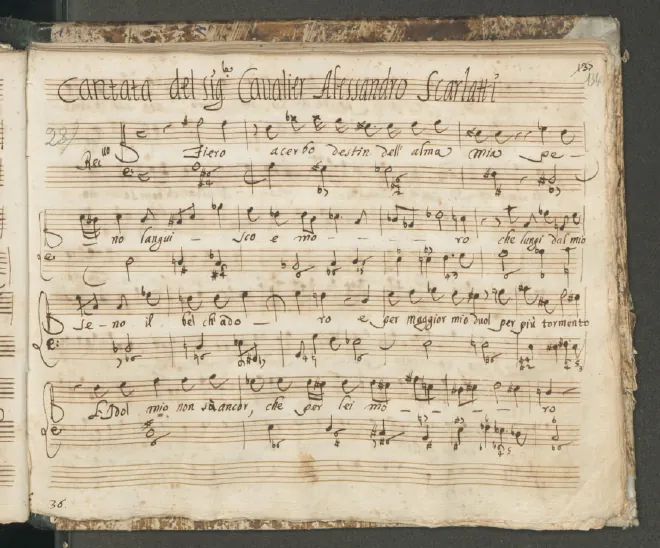 137
134
Cantata del Sig.re Cavalier Alessandro Scarlatti
28/
Rec.vo Fiero acerbo destin dell' alma mia pe-
no langui - sco e mo - - - ro che lungi dal mio
se - no il bel ch' ado - ro e per maggior mio duol per più tormento
L' Idol mio non sà ancor, che per lei mo - - - - ro
36.